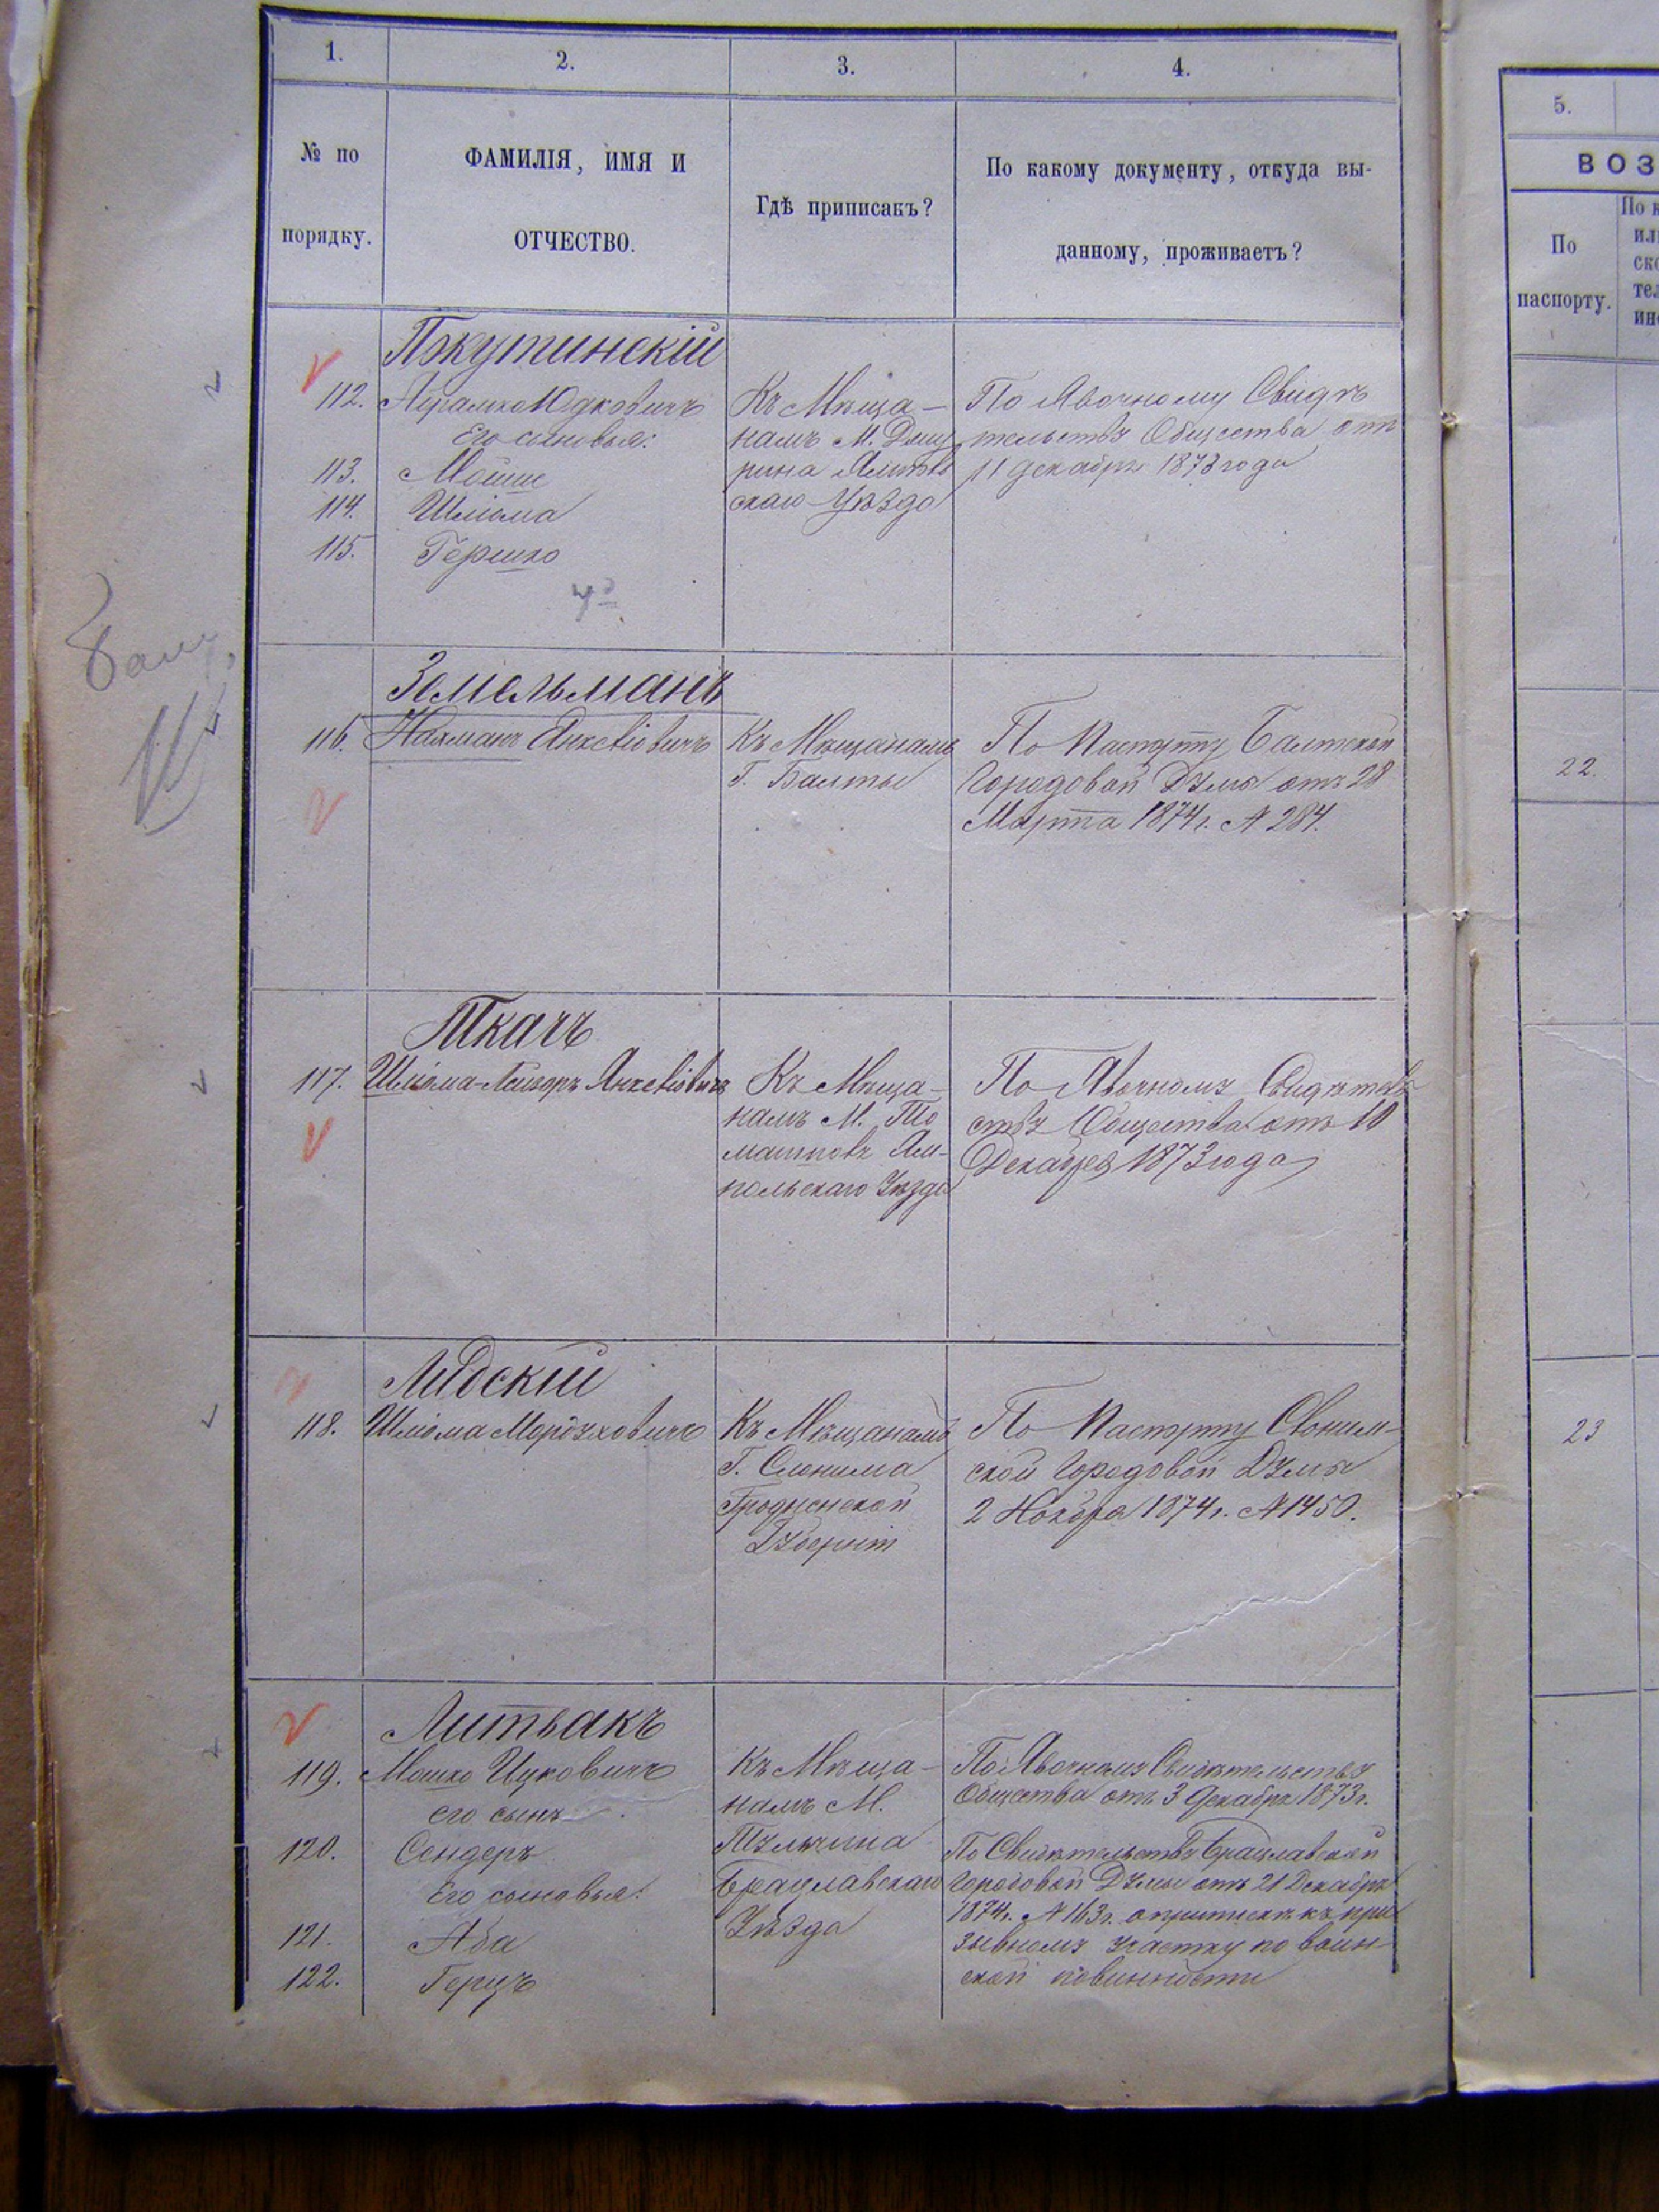 1.
2.
3.
4.
№ по
порядку.
ФАМИЛІЯ, ИМЯ И
ОТЧЕСТВО.
Гдѣ приписанъ?
По какому документу, откуда вы-
данному, проживаетъ?
Покутинскій
112. Абрамко Юдковичъ
Его сыновья:
113. Мошко
114. Шліома
115. Гершко
Къ Мѣща-
намъ М.
скаго Уѣзда
По Явочному Свидѣ
тельству Общества отъ
11 декабря 1873 года
Балт.
Земельманъ
116. Нахманъ Янкеліовичъ
Къ Мѣщанамъ
Г. Балты
По Паспорту Балтской
Городовой Думы отъ 28
Марта 1874 г. № 284.
Ткачъ
117. Шліома-Лейзоръ Янкеліовичъ
Къ Мѣща-
намъ М. То
машполя Ям-
польскаго Уѣзда
По Явочному Свидѣтель
ству Общества отъ 10
Декабря 1873 года
Лидскій
118. Шліома Мордуховичъ
Къ Мѣщанамъ
Г. Слонима
Гродненской
Губерніи
По Паспорту Слоним-
ской Городовой Думы
2 Ноября 1874 г. № 1450.
Литвакъ
119. Мошко Ицковичъ
его сынъ
120. Сендеръ
Его сыновья:
121. Аба
122. Герцъ
Къ Мѣща-
намъ М.
Тульчина
Брацлавскаго
Уѣзда
По Явочному Свидѣтельству
Общества отъ 3 декабря 1873 г.
По Свидѣтельству Брацлавской
Городовой Думы отъ 21 Декабря
1874 г. № 163 г. о припискѣ къ при
зывному участку по воин-
ской повинности
5.
ВОЗ
По
паспорту.
22.
23